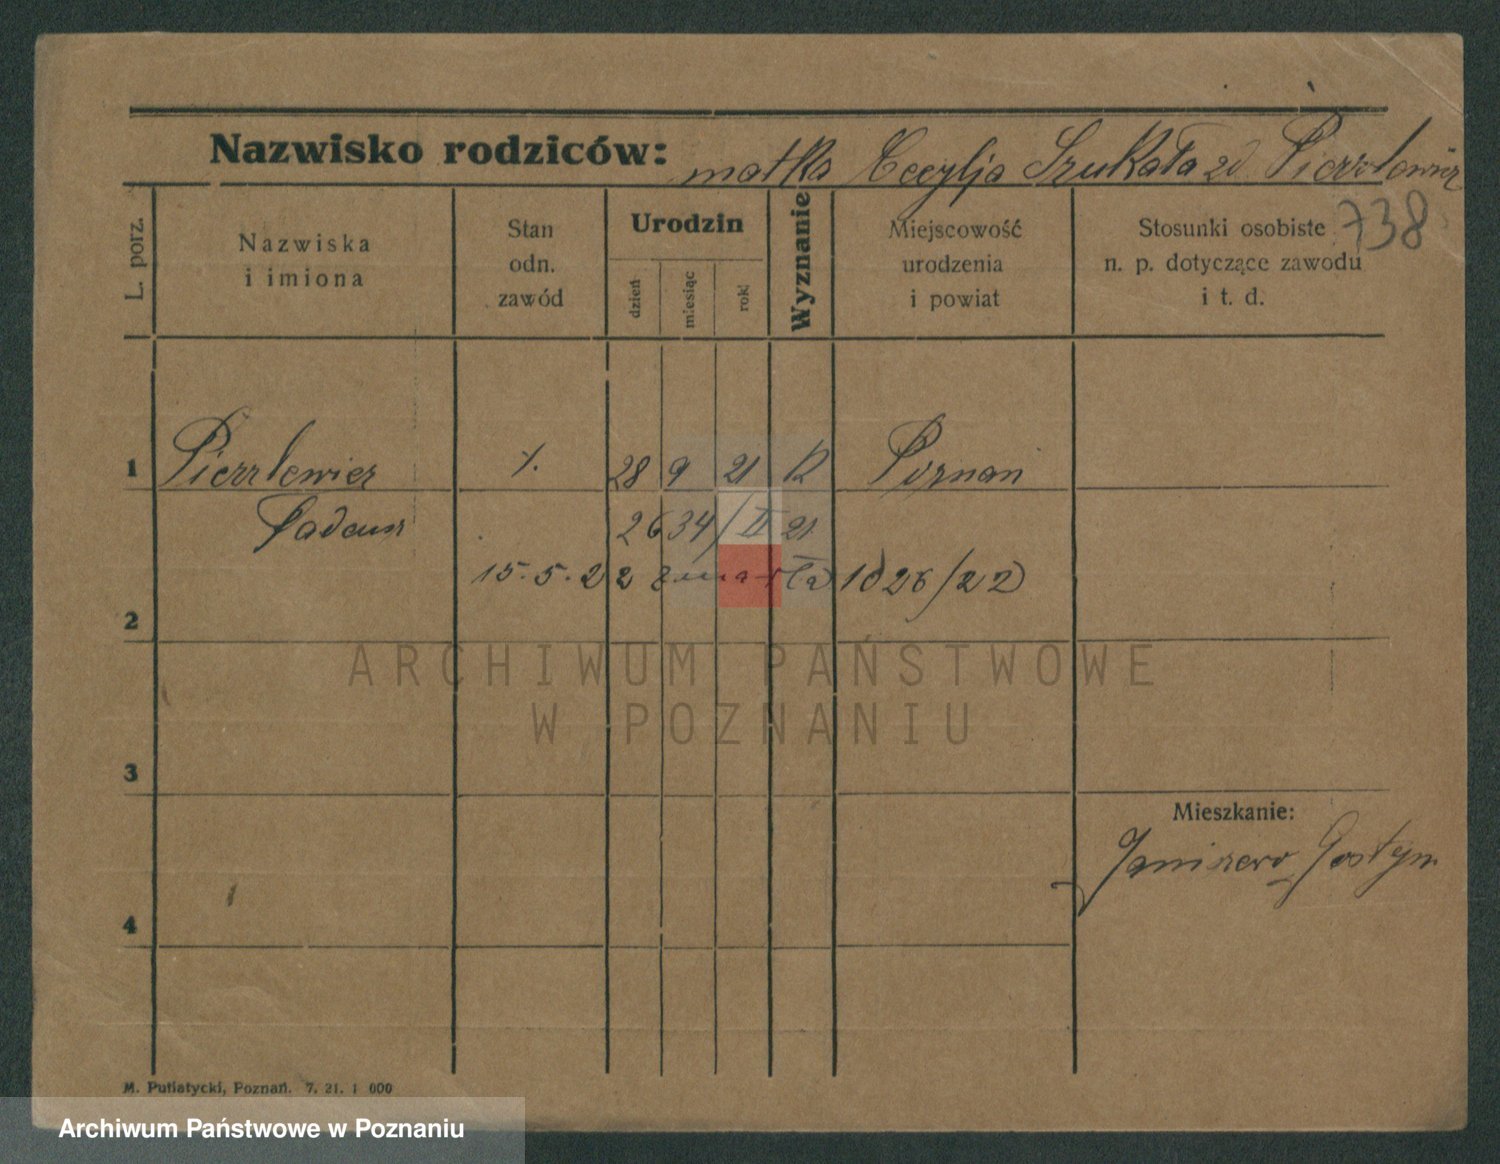 Nazwisko rodziców: matka Cecylja Szukała zd. Pierzlewicz
738
L. porz.
Nazwiska
i imiona
Stan
odn.
zawód
Urodzin
dzień
miesiąc
rok
Wyznanie
Miejscowość
urodzenia
i powiat
Stosunki osobiste
n. p. dotyczące zawodu
i t. d.
1 Pierzlewicz 28 9 21 R Poznań
Tadeusz 2634/II 21
15.5.22 zmarła 1026/22
2
ARCHIWUM PAŃSTWOWE
W POZNANIU
3
Mieszkanie:
Janiszewo, Gostyń
4
M. Putiatycki, Poznań. 7. 21. 1 000
Archiwum Państwowe w Poznaniu